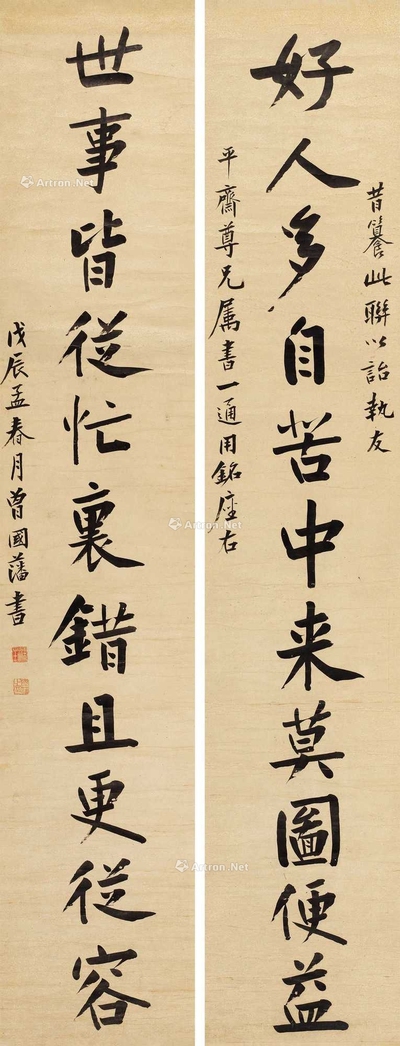 昔纂此聯以詒執友
好人多自苦中来莫圖便益
平齋尊兄属書一通用銘座右
世事皆從忙裏錯且更從容
戊辰孟春月曾國藩書
Artron.Net
Artron.Net
Artron.Net
Artron.Net